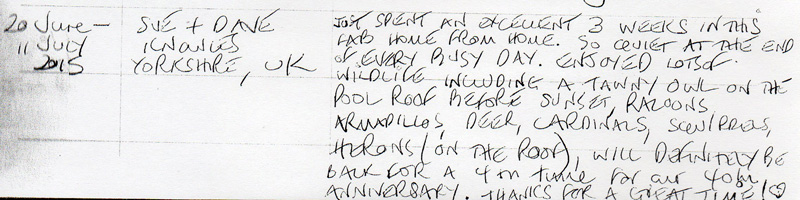 20 June – SUE + DAVE JUST SPENT AN EXCELLENT 3 WEEKS IN THIS
11 JULY KNOWLES FAB HOME FROM HOME. SO QUIET AT THE END
2015 YORKSHIRE, UK OF EVERY BUSY DAY. ENJOYED LOTS OF
WILDLIFE INCLUDING A TAWNY OWL ON THE
POOL ROOF BEFORE SUNSET, RACOONS,
ARMADILLOS, DEER, CARDINALS, SQUIRRELS,
HERONS (ON THE ROOF), WILL DEFINITELY BE
BACK FOR A 4th time for our 40th
ANNIVERSARY. THANKS FOR A GREAT TIME!♡